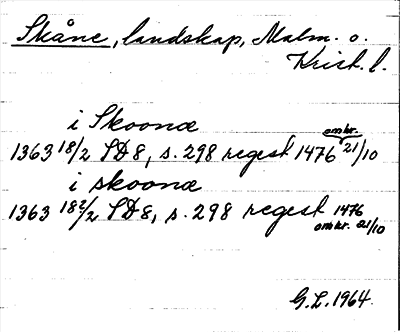 Skåne, landskap, Malm. o.
Krist. l.
i Skoonæ
omkr.
1363 18/2 SD8, s. 298 regest 1476 21/10
i skoonæ
1363 18 2/2 SD8, s. 298 regest 1476
omkr. 21/10
G.L. 1964.